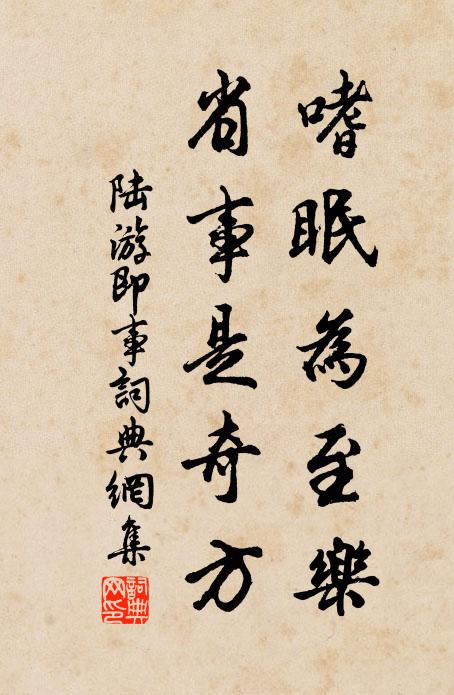 嗜眠為至樂
省事是奇方
陸游即事詞典網集
詞典網印